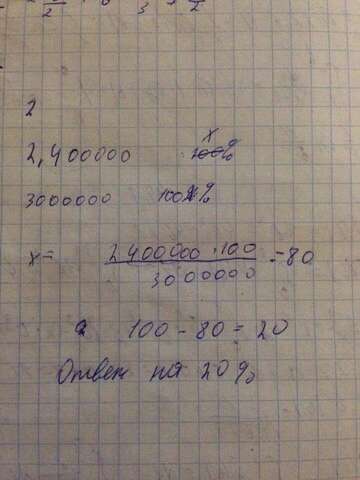 2
2,400000 x%
3000000 100%
x = 2400000 · 100 / 3000000 = 80
100 - 80 = 20
Ответ на 20%